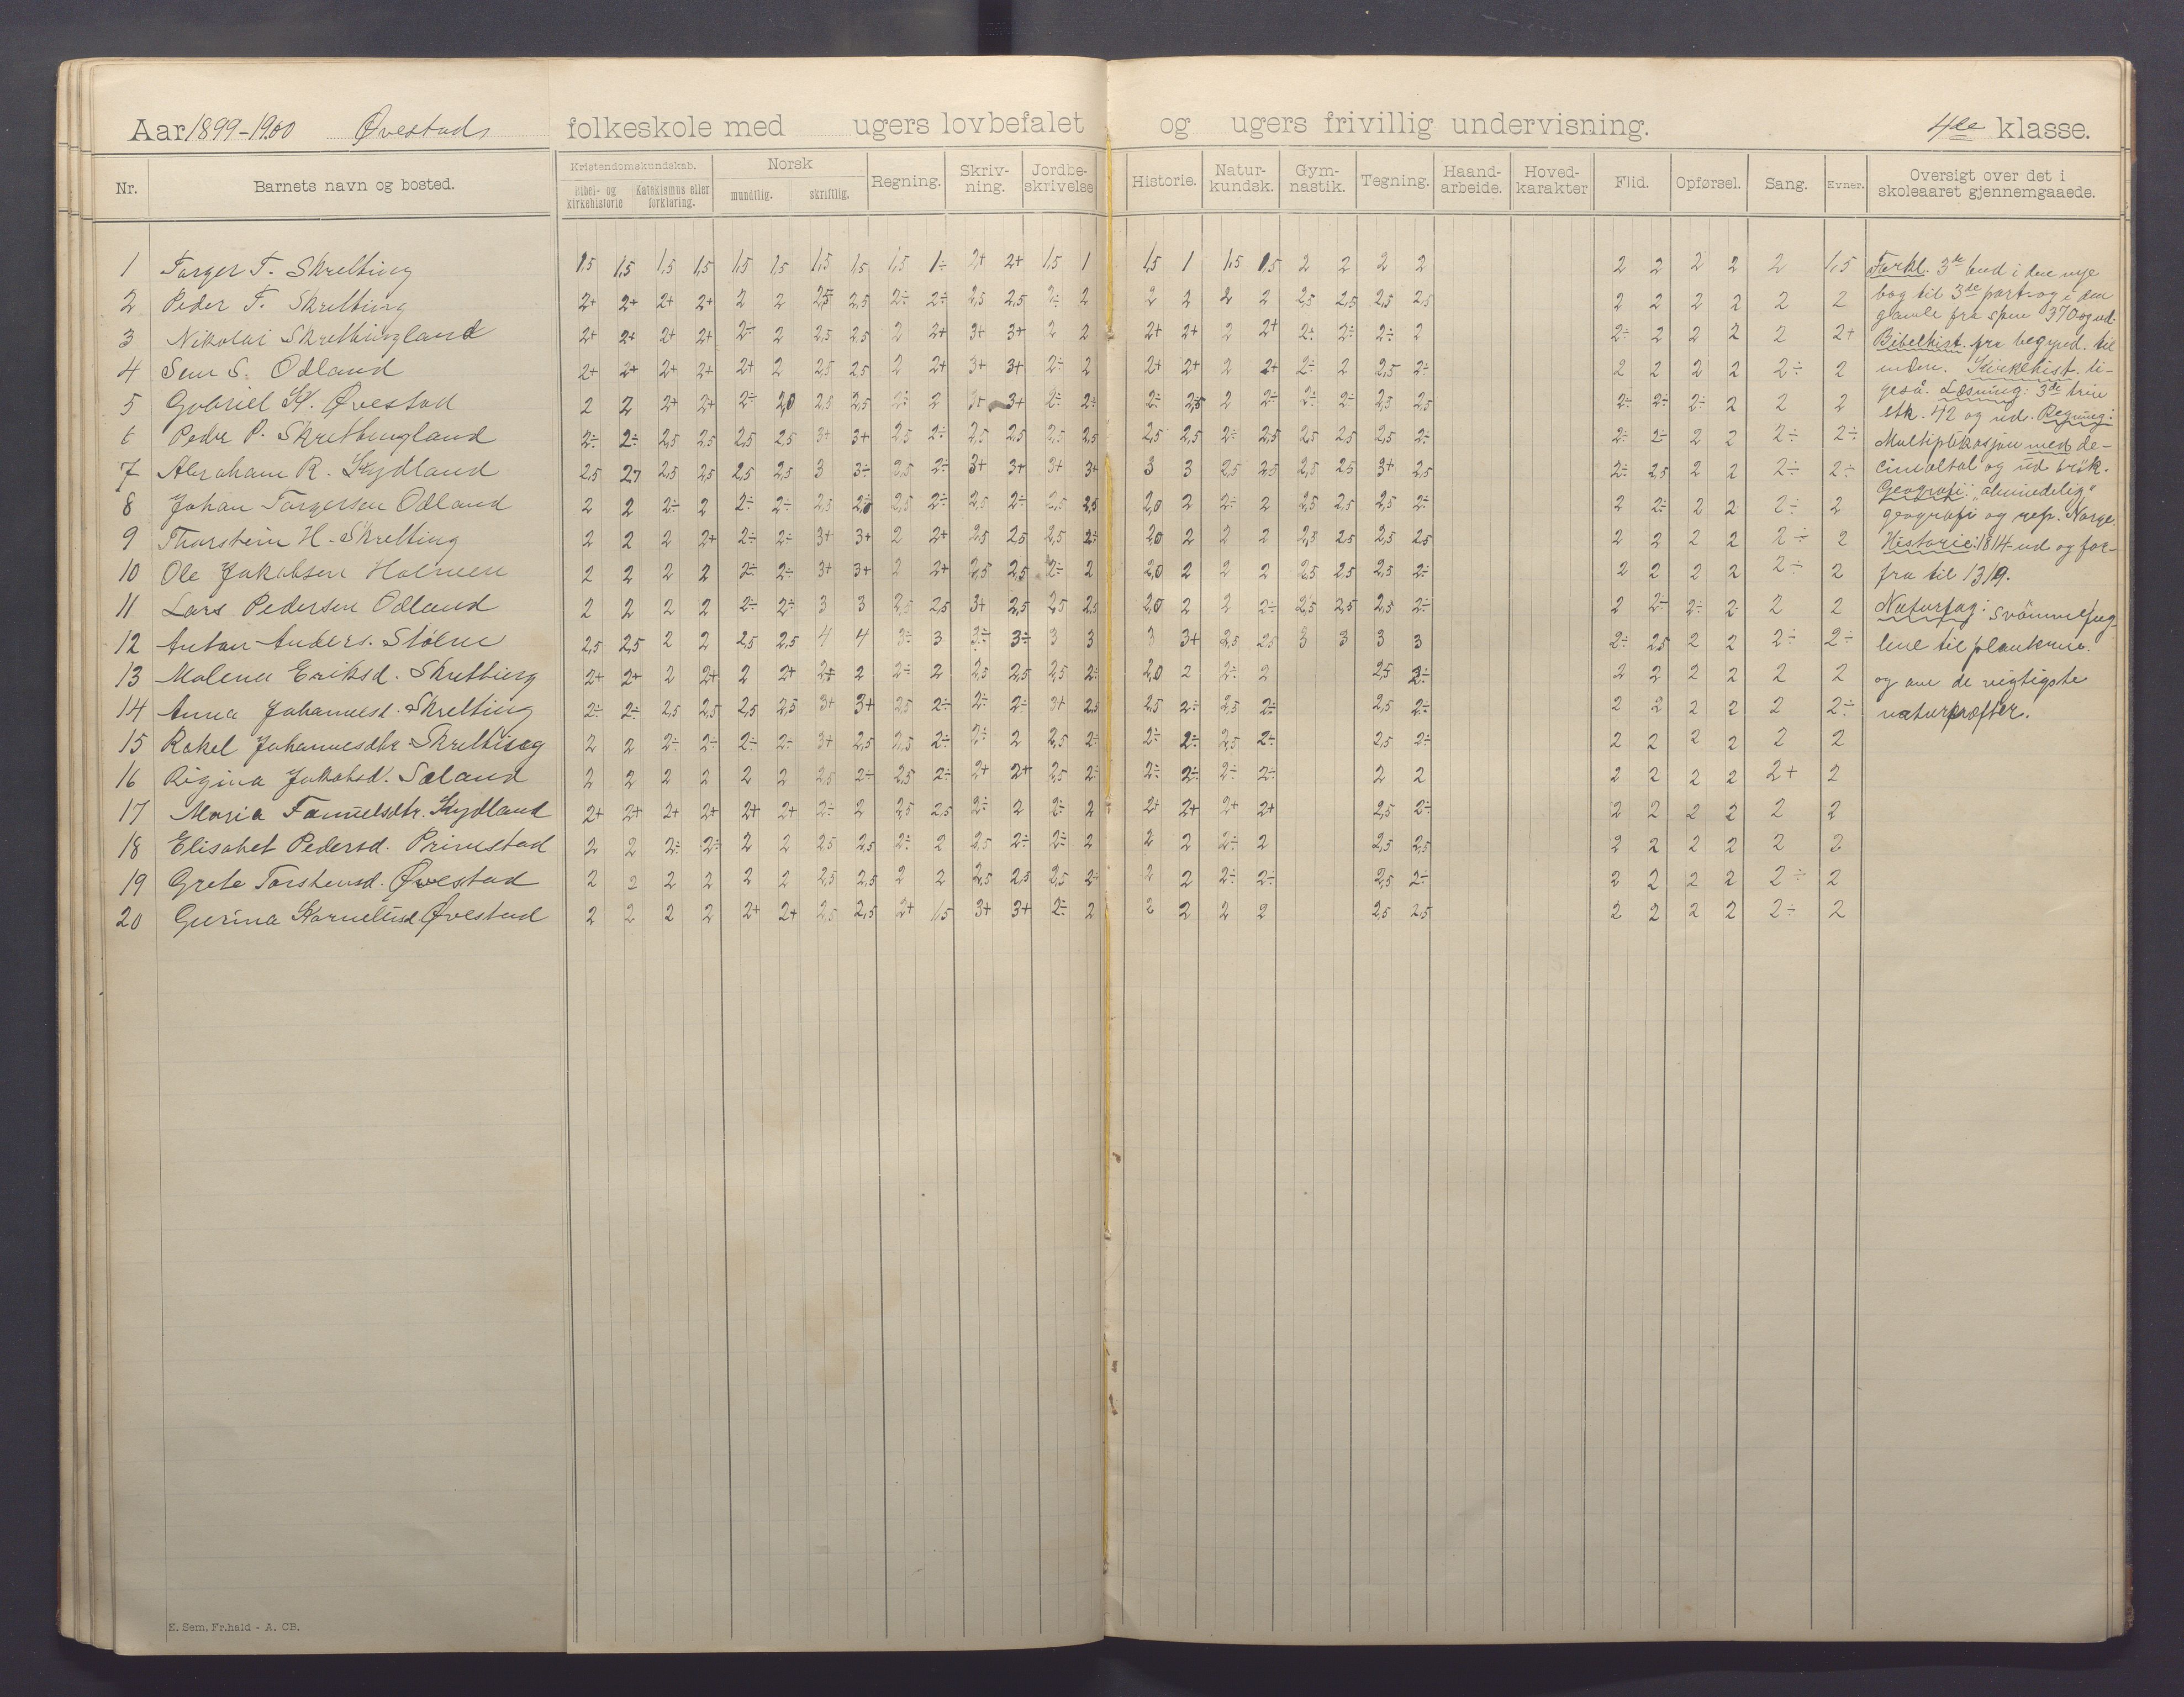 Aar 1899-1900 Øvestads folkeskole med ugers lovbefalet og ugers frivillig undervisning. 4de klasse.
Nr. Barnets navn og bosted. Kristendomskundskab. Bibel- og kirkehistorie Katekismus eller forklaring. Norsk mundtlig. skriftlig. Regning. Skriv-ning. Jordbe-skrivelse Historie. Natur-kundsk. Gym-nastik. Tegning. Haand-arbeide. Hoved-karakter Flid. Opførsel. Sang. Evner. Oversigt over det i skoleaaret gjennemgaaede.
1 Torger T. Skretting 1,5 1,5 1,5 1,5 1,5 1,5 1,5 1,5 1,5 1÷ 2+ 2+ 1,5 1 1,5 1 1,5 1,5 2 2 2 2 2 2 2 2 2 1,5
2 Peder T. Skretting 2+ 2+ 2+ 2+ 2 2 2,5 2,5 2÷ 2÷ 2,5 2,5 2÷ 2 2 2 2 2 2,5 2,5 2,5 2,5 2 2 2 2 2 2
3 Nikolai Skrettingland 2+ 2+ 2+ 2+ 2÷ 2 2,5 2,5 2 2+ 3+ 3+ 2 2 2+ 2+ 2 2+ 2÷ 2÷ 2÷ 2 2÷ 2 2 2 2 2+
4 Sem S. Odland 2+ 2+ 2+ 2+ 2+ 2 2,5 2,5 2 2+ 3+ 3+ 2÷ 2 2+ 2+ 2 2+ 2÷ 2 2,5 2÷ 2 2 2 2 2÷ 2
5 Gabriel K. Øvestad 2 2 2+ 2+ 2÷ 2,0 2,5 2,5 2÷ 2 3+ 3+ 2÷ 2÷ 2÷ 2,5 2 2÷ 2÷ 2÷ 2,5 2,5 2÷ 2÷ 2÷ 2 2 2
6 Peder P. Skrettingland 2÷ 2÷ 2,5 2,5 2,5 2,5 3+ 3+ 2,5 2÷ 2,5 2,5 2,5 2,5 2,5 2,5 2÷ 2,5 2,5 2,5 2,5 2÷ 2÷ 2÷ 2 2 2÷ 2÷
7 Abraham R. Kydland 2,5 2,7 2,5 2,5 2,5 2,5 3 3÷ 3,5 2÷ 3+ 3+ 3+ 3+ 3 3 2,5 2,5 2,5 2,5 3+ 2,5 2÷ 2,5 2 2 2÷ 2÷
8 Johan Torgersen Odland 2 2 2÷ 2 2÷ 2÷ 2,5 2,0 2,5 2÷ 2,5 2÷ 2,5 2,5 2,0 2 2÷ 2 2,5 2,5 2,5 2÷ 2 2÷ 2 2 2÷ 2
9 Thorstein H. Skretting 2 2 2 2+ 2÷ 2÷ 3+ 3+ 2 2+ 2,5 2,5 2,5 2÷ 2,0 2 2 2 2,5 2,5 2,5 2,5 2 2 2 2 2÷ 2
10 Ole Jakobsen Holmen 2 2 2 2 2÷ 2÷ 3+ 3+ 2 2+ 2,5 2,5 2÷ 2 2,0 2 2 2 2,5 2,5 2,5 2÷ 2 2 2 2 2÷ 2
11 Lars Pedersen Odland 2 2 2 2 2÷ 2÷ 3 3 2,5 2,5 3+ 2,5 2,5 2,5 2,0 2 2 2÷ 2,5 2,5 2,5 2÷ 2 2÷ 2÷ 2 2 2
12 Anton Anders. Stølen 2,5 2,5 2 2 2,5 2,5 4 4 3÷ 3 3÷ 3÷ 3 3 3 3+ 2,5 2,5 3 3 3 3 2÷ 2,5 2 2 2÷ 2÷
13 Malena Eriksd. Skretting 2+ 2+ 2 2+ 2 2+ 2,5 2 2÷ 2 2,5 2,5 2,5 2÷ 2,0 2 2÷ 2 2,5 2÷ 2 2 2 2 2 2
14 Anna Johannesd. Skretting 2÷ 2÷ 2,5 2,5 2,5 2,5 3+ 3+ 2,5 2÷ 2÷ 2÷ 3+ 2,5 2,5 2÷ 2,5 2÷ 2,5 2÷ 2 2 2 2 2 2÷
15 Rakel Johannesdtr. Skretting 2 2 2÷ 2÷ 2÷ 2÷ 3+ 2,5 2,5 2÷ 2÷ 2 2,5 2÷ 2÷ 2÷ 2,5 2÷ 2,5 2÷ 2 2 2 2 2 2
16 Rigina Jakobsd. Søland 2 2 2 2 2 2 2,5 2÷ 2,5 2÷ 2+ 2+ 2,5 2÷ 2÷ 2÷ 2÷ 2÷ 2 2 2 2 2 2 2+ 2
17 Maria Samuelsdtr. Kydland 2+ 2+ 2+ 2+ 2+ 2+ 2÷ 2 2,5 2,5 2÷ 2 2÷ 2 2+ 2+ 2+ 2+ 2,5 2÷ 2 2 2 2 2 2
18 Elisabet Pedersd. Primstad 2 2 2÷ 2÷ 2 2 2,5 2,5 2÷ 2 2,5 2÷ 2÷ 2 2 2 2÷ 2 2,5 2,5 2 2 2 2 2 2
19 Grete Torstensd. Øvestad 2 2 2 2 2 2 2,5 2,5 2 2 2,5 2,5 2,5 2÷ 2 2 2÷ 2÷ 2,5 2÷ 2 2 2 2 2÷ 2
20 Gurina Korneliusd. Øvestad 2 2 2 2 2+ 2+ 2,5 2,5 2+ 1,5 3+ 3+ 2÷ 2 2 2 2 2 2,5 2,5 2 2 2 2 2÷ 2
Forkl. 3de bud i den nye
bog til 3de part og i den
gamle fra spm 370 og ud.
Bibelhist. fra begynd. til
enden. Kirkehist. li-
geså. Læsning: 3de trin
stk. 42 og ud. Regning:
Multiplikasjon med de-
cimaltal og ud brök.
Geografi: "almindelig"
geografi og rep. Norge.
Historie: 1814 ud og for-
fra til 1319.
Naturfag: Svömmefug-
lene til plankene.
og ane de vigtigste
naturkræfter.
E. Sem, Fr.hald - A. CB.